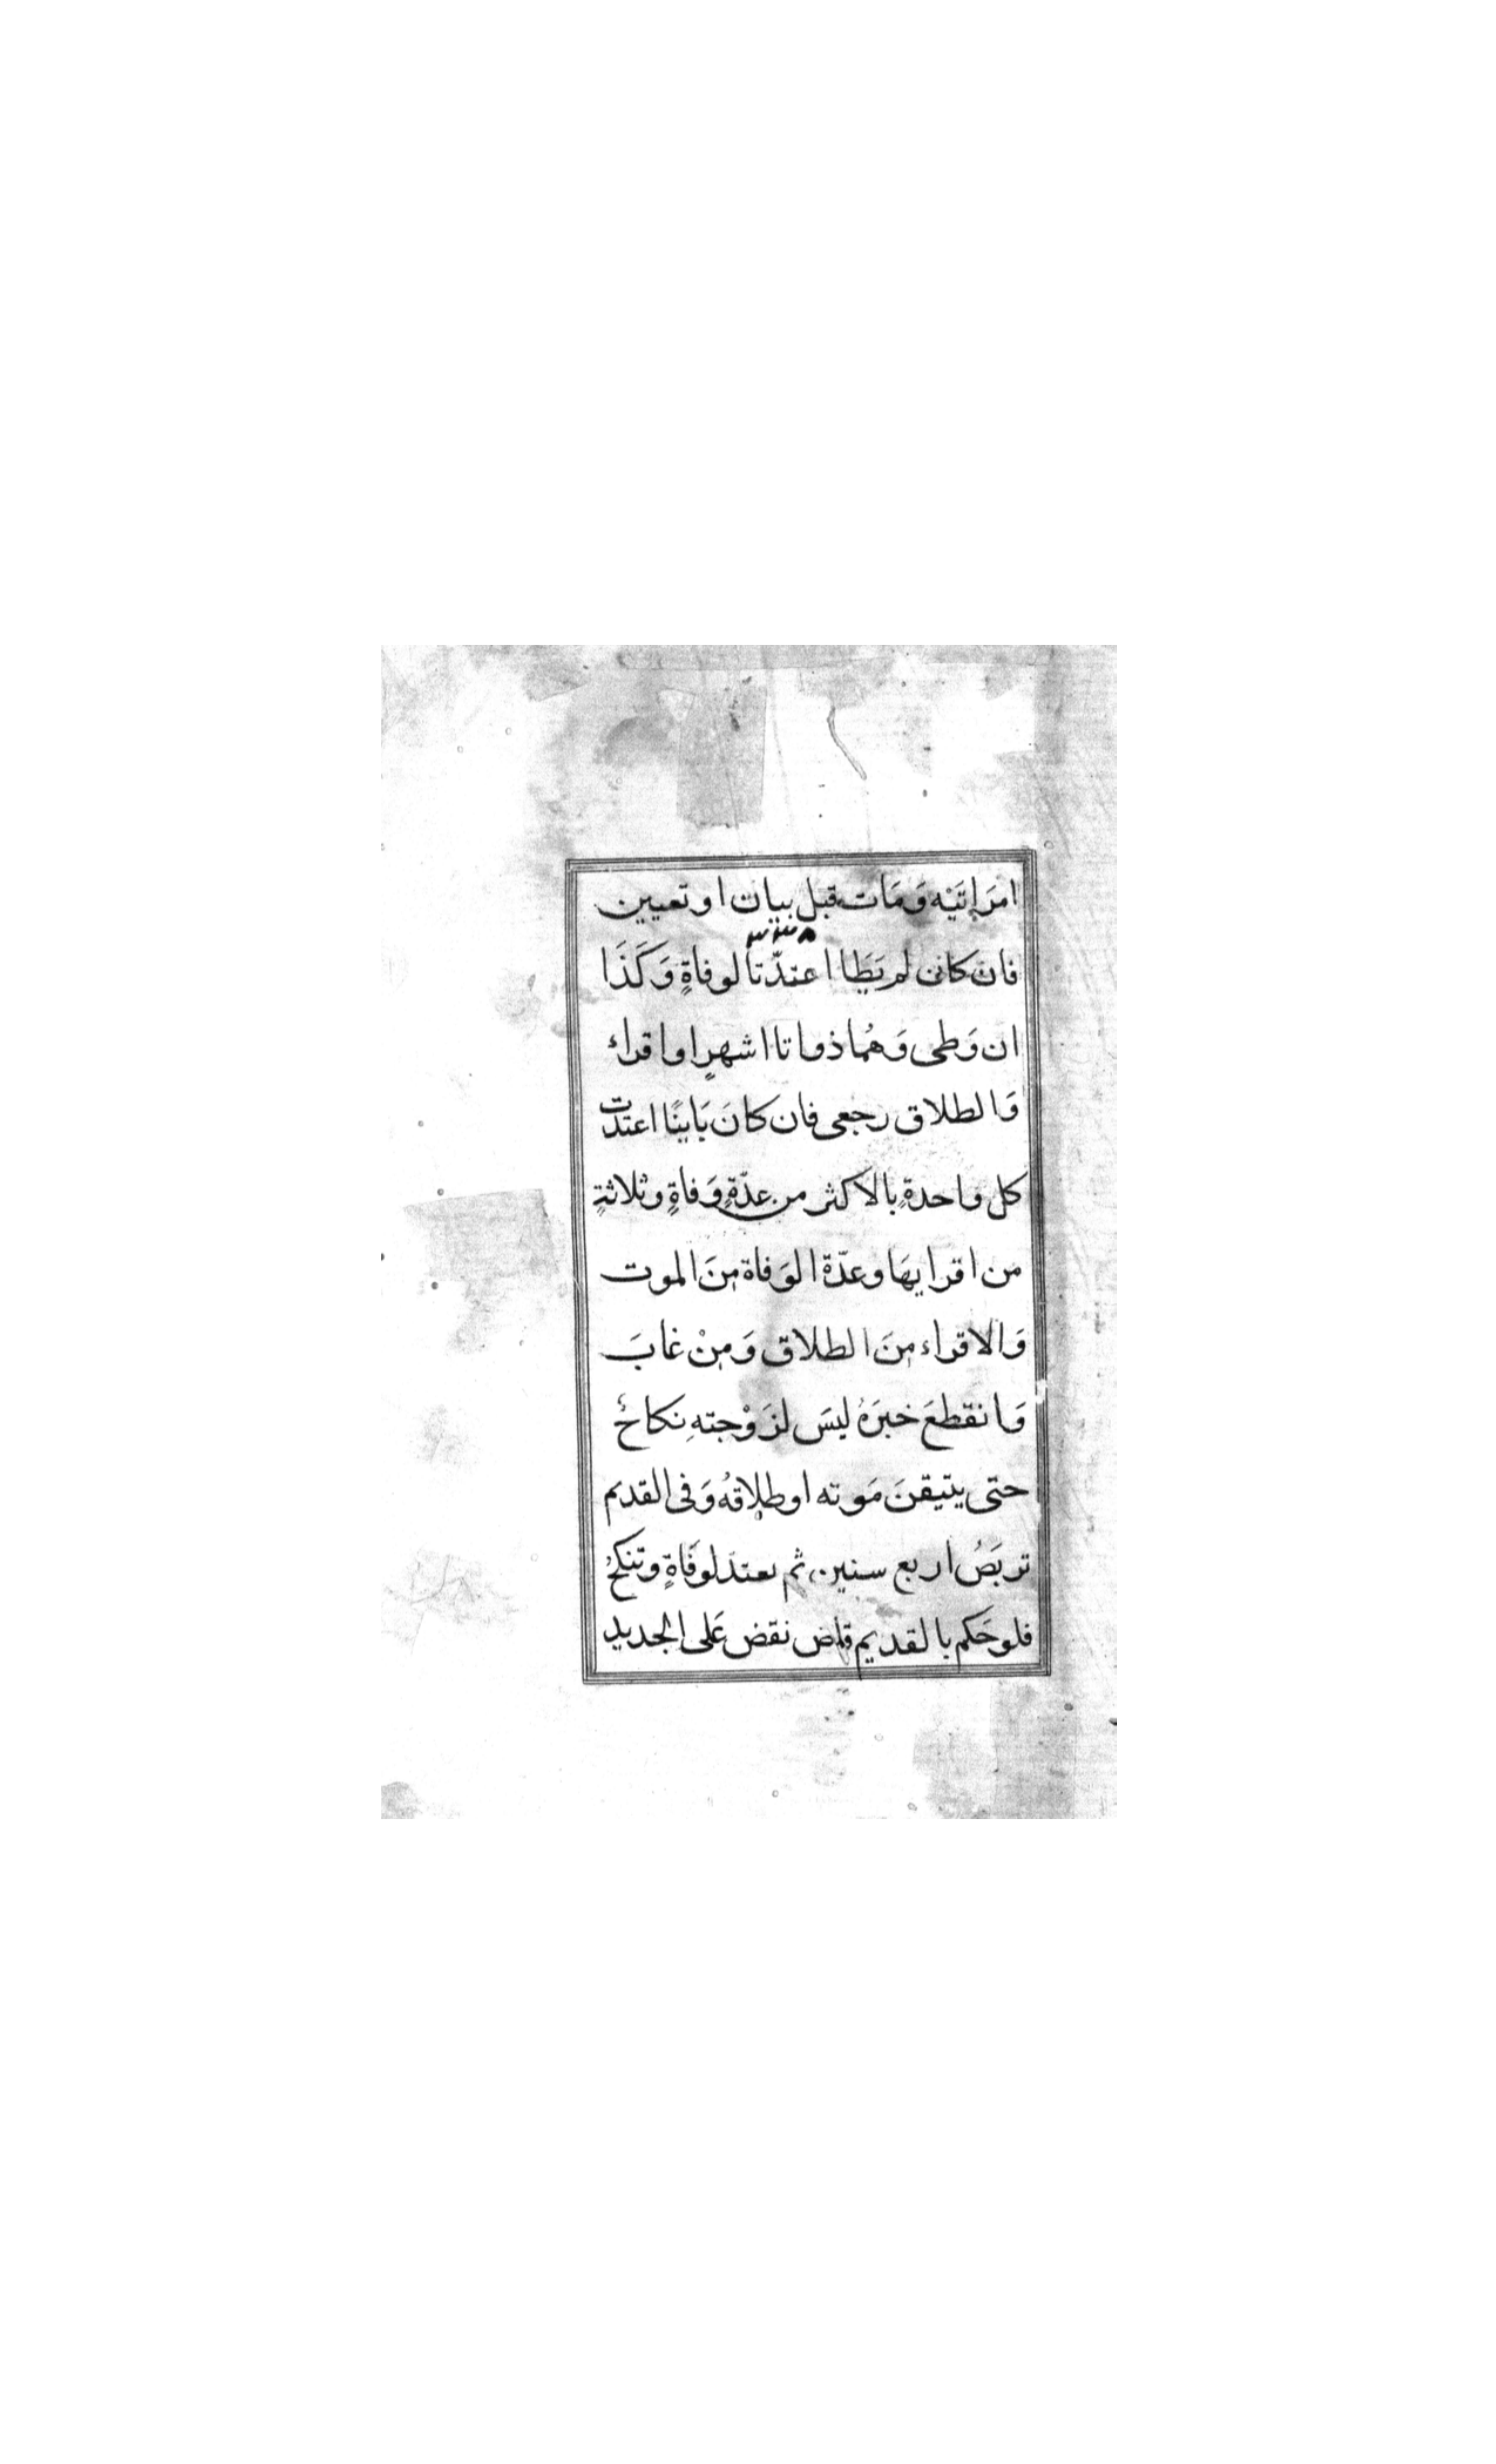 امرَاتَيْه وَمَات قبل بيان او تعيين
فان كان لم يَطَا اعتدّتا لوفاةٍ وَكَذَا
ان وَطى وَهُما ذواتا اشهرٍ او اقراء
وَالطلاق رجعى فان كانَ بَاينًا اعتدّت
كل واحدةٍ بالاكثر من عدّةٍ وَفاةٍ وثلاثةٍ
من اقرايهَا وعدّة الوَفاة مِنَ الموت
وَالاقراء مِنَ الطلاق وَمِنْ غابَ
وَانقطعَ خبرَهُ ليسَ لزَوْجتهِ نكاحٌ
حتى يتيقنَ مَوته او طلاقهُ وَفى القديم
تربَصُ اربع سنين ثم تعتدّ لوفَاةٍ وتنكحُ
فلو حَكم بالقديم قاض نقض عَلى الجديد